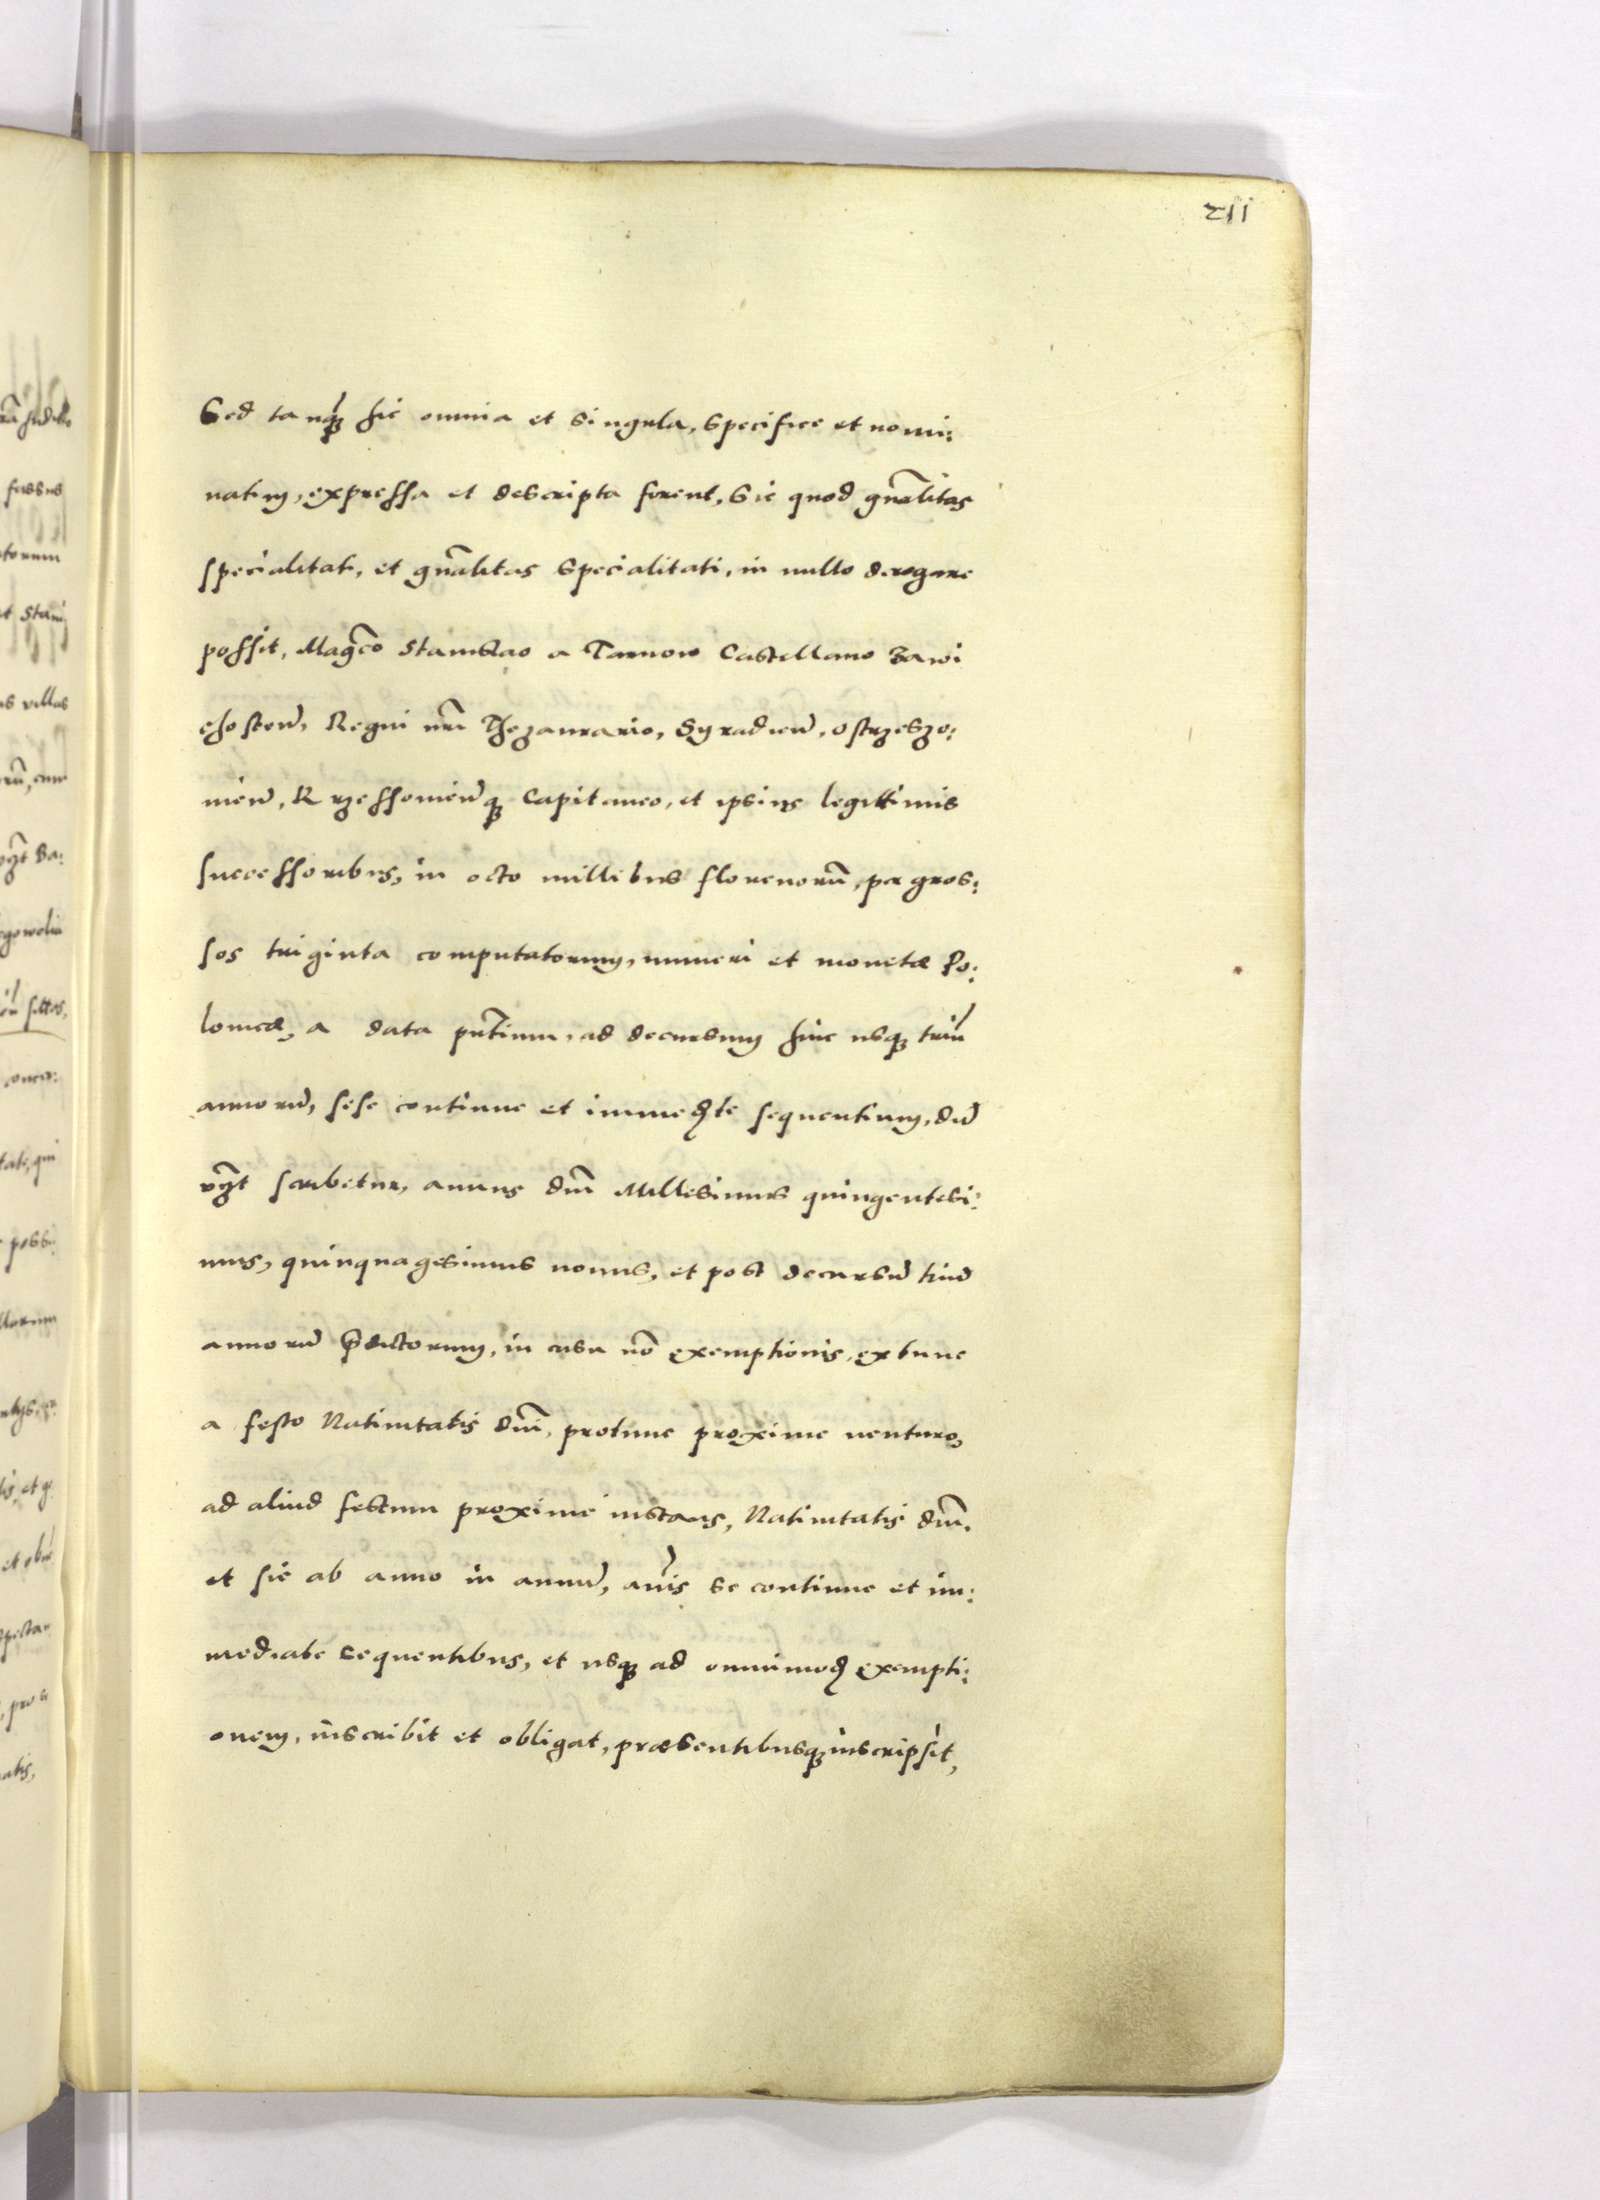 211
Sed tanq̃ hic omnia et singula, specifice et nomi:
natim, expressa et descripta forent, sic quod gn̄alitas
specialitati, et gn̄alitas specialitati, in nullo derogare
possit, Mag̃co Stanislao a Tarnow Castellano Zawi
chosten̄, Regni nr̄i Thezaurario, Syradien̄, Ostrzeszo:
nien̄, Rzessoviens̄q; Capitaneo, et ipsius legittimis
successoribus, in octo millibus florenorū, per gros:
sos triginta computatorum, numeri et monetæ Po:
lonicæ, a data pn̄tium, ad decursum hinc usq; triū
annorū, sese continue et immedte sequentium, dū
vz̄t scribetur, annus Dn̄i Millesimus quingentesi:
mus, quinquagesimus nonus, et post decursū triū
annorū p̄dictorum, in casu nō exemptionis, extunc
a festo Nativitatis Dn̄i, protunc proxime venturo,
ad aliud festum proxime instans, Nativitatis Dn̄i.
et sic ab anno in annū, an̄is se continue et im:
mediate sequentibus, et usq; ad omnimod exempti:
onem, inscribit et obligat, præsentibusq; inscripsit,